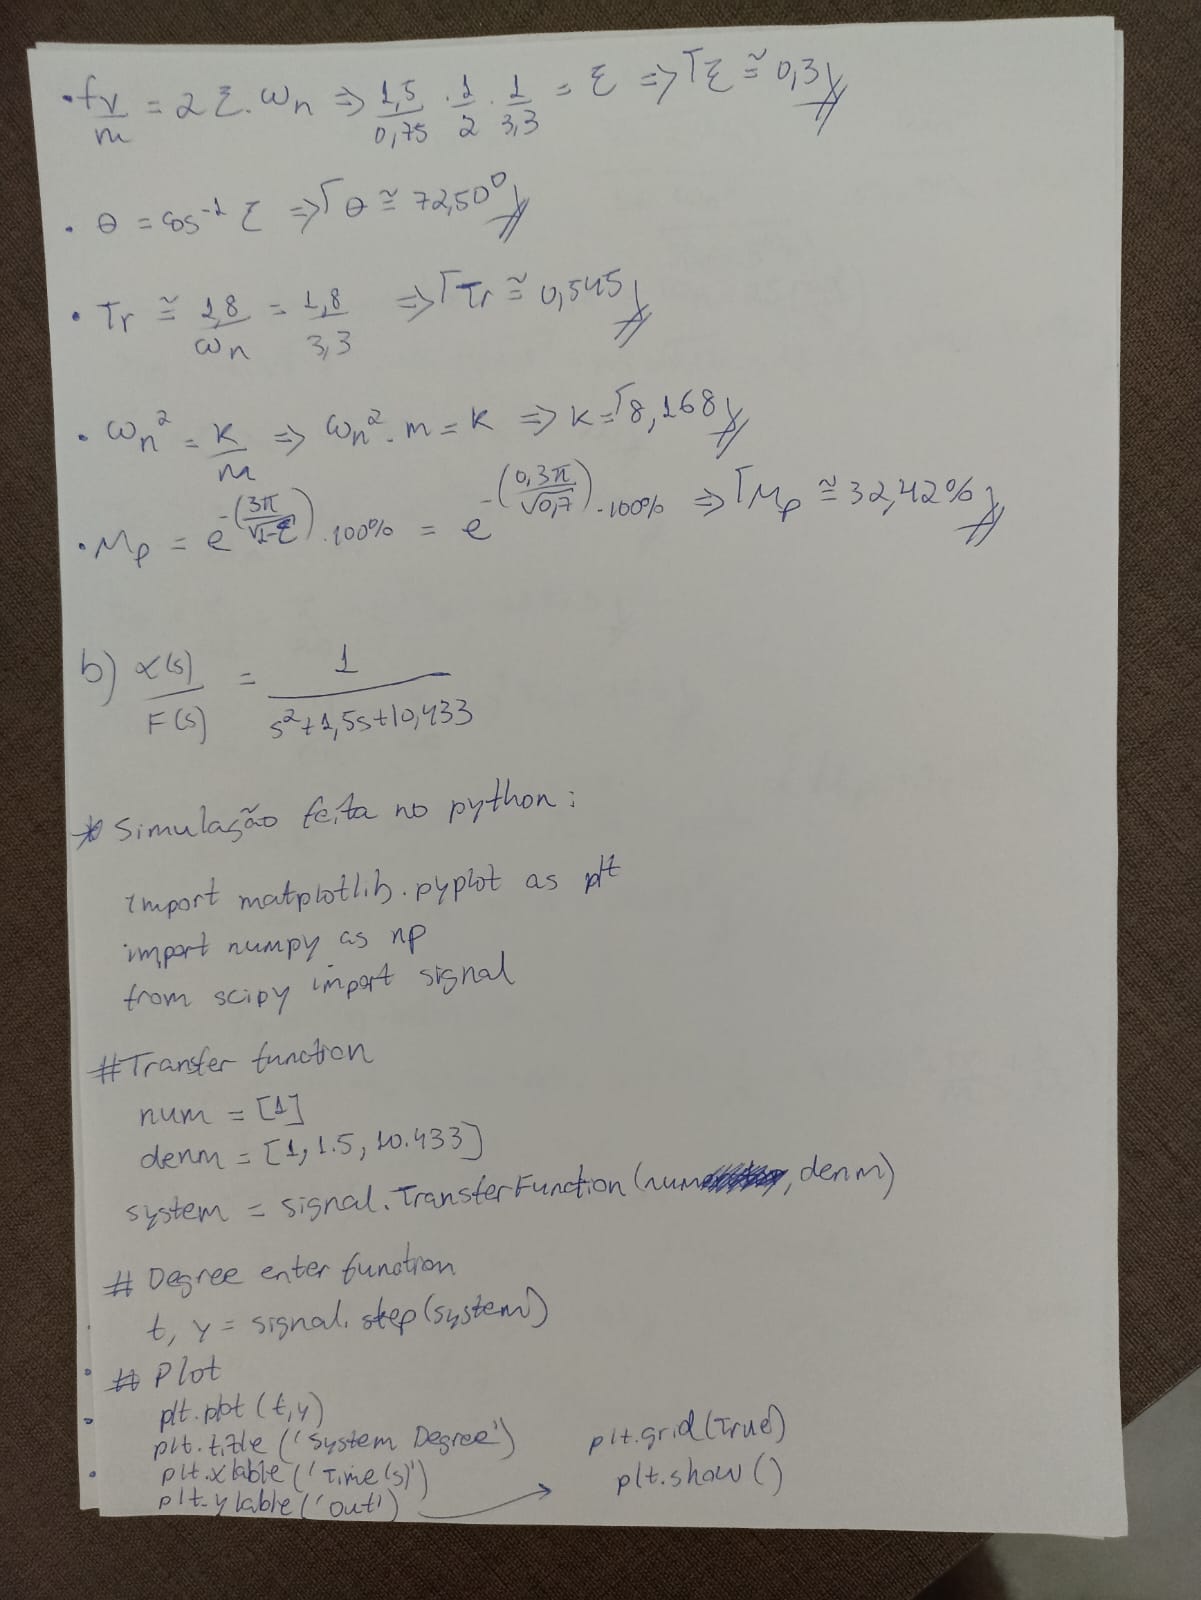 • fv/m = 2 ξ. ωn => 1,5/0,75 . 1/2 . 1/3,3 = ξ => ξ ≅ 0,3
• θ = cos⁻¹ ξ => θ ≅ 72,50°
• Tr ≅ 1,8/ωn = 1,8/3,3 => Tr ≅ 0,545
• ωn² = k/m => ωn² . m = k => k = 8,168
• Mp = e^-(3π/√1-ξ) . 100% = e^-(0,3π/√0,7) . 100% => Mp ≅ 32,42%
b) x(s)/F(s) = 1/(s²+1,5s+10,433)
* Simulação feita no python:
import matplotlib.pyplot as plt
import numpy as np
from scipy import signal
#Transfer function
num = [1]
denm = [1, 1.5, 10.433]
system = signal.TransferFunction(num, denm)
# Degree enter function
t, y = signal.step(system)
# Plot
plt.plot(t,y)
plt.title('System Degree')
plt.xlable('Time(s)')
plt.ylable('out')
plt.grid(True)
plt.show()